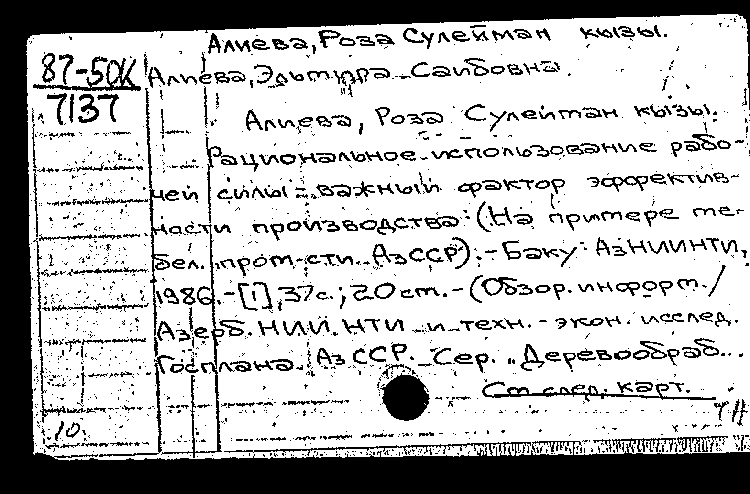 Алиева, Роза Сулейман кызы.
87-50К
7137
Алиева, Эльмира Саибовна.
Алиева, Роза Сулейман кызы.
Рациональное использование рабо-
чей силы - важный фактор эффектив-
ности производства: (На примере ме-
бел. пром-сти АзССР). - Баку: АзНИИНТИ,
1986. - [1], 37с.; 20 см. - (Обзор. информ. /
Азерб. НИИ НТИ и техн. - экон. исслед.
Госплана АзССР. Сер. "Деревообраб...
См след. карт.
10.